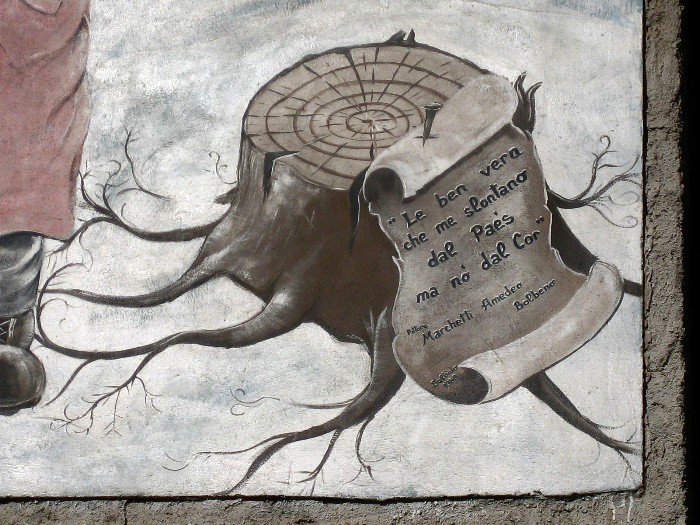 "Le ben vera
che me slontano
dal Paés
ma nó dal Cor"
Marchetti Amedeo
Bolbeno